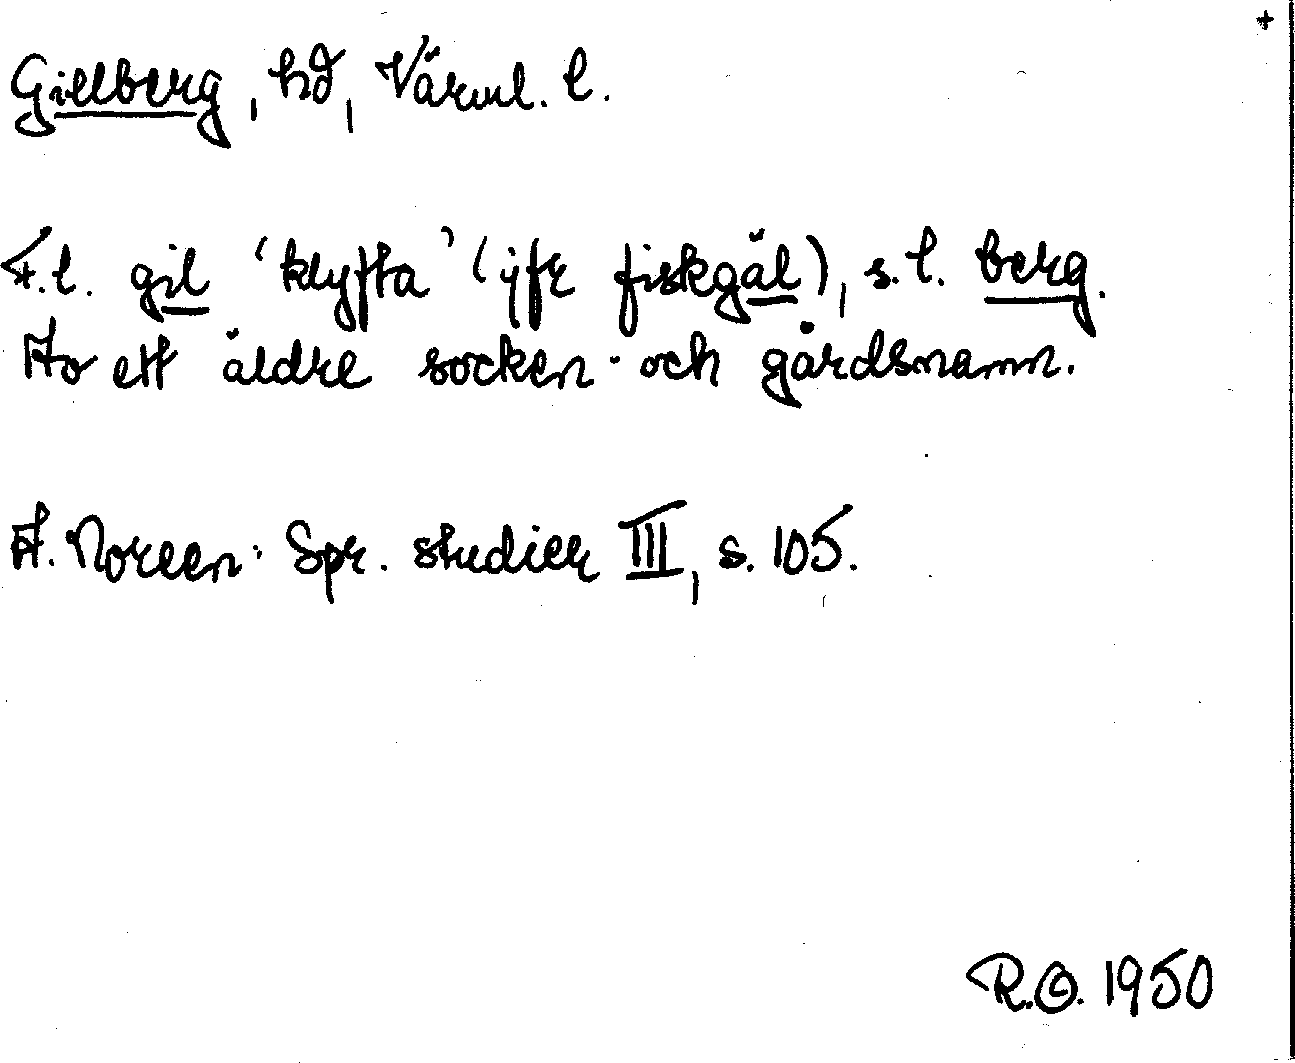 Gillberg, hd, Värml. l.
F.l. gil 'klyfta' (jfr fiskgäl), s.l. berg.
Av ett äldre socken- och gårdsnamn.
A. Noreen: Spr. studier III, s. 105.
R.O. 1950